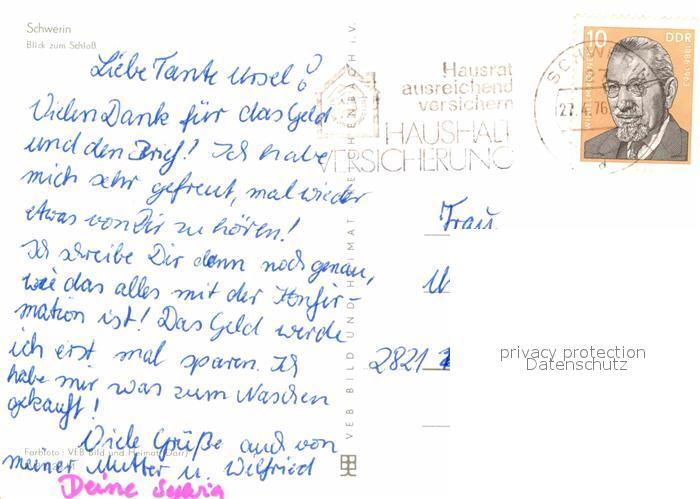 Schwerin
Blick zum Schloß
Liebe Tante Ursel!
Vielen Dank für das Geld
und den Brief! Ich habe
mich sehr gefreut, mal wieder
etwas von Dir zu hören!
Ich schreibe Dir dann noch genau,
wie das alles mit der Konfir-
mation ist! Das Geld werde
ich erst mal sparen. Ich
habe mir was zum Naschen
gekauft!
Viele Grüße auch von
meiner Mutter u. Wilfried
Deine
Farbfoto: VEB Bild und Heimat (Darr)
VEB BILD UND HEIMAT REICHENBACH I.V.
Hausrat
ausreichend
versichern
HAUSHALT
VERSICHERUNG
SCHW
27.4.76
10 DDR
1886-1963
Frau
U
2821
privacy protection
Datenschutz